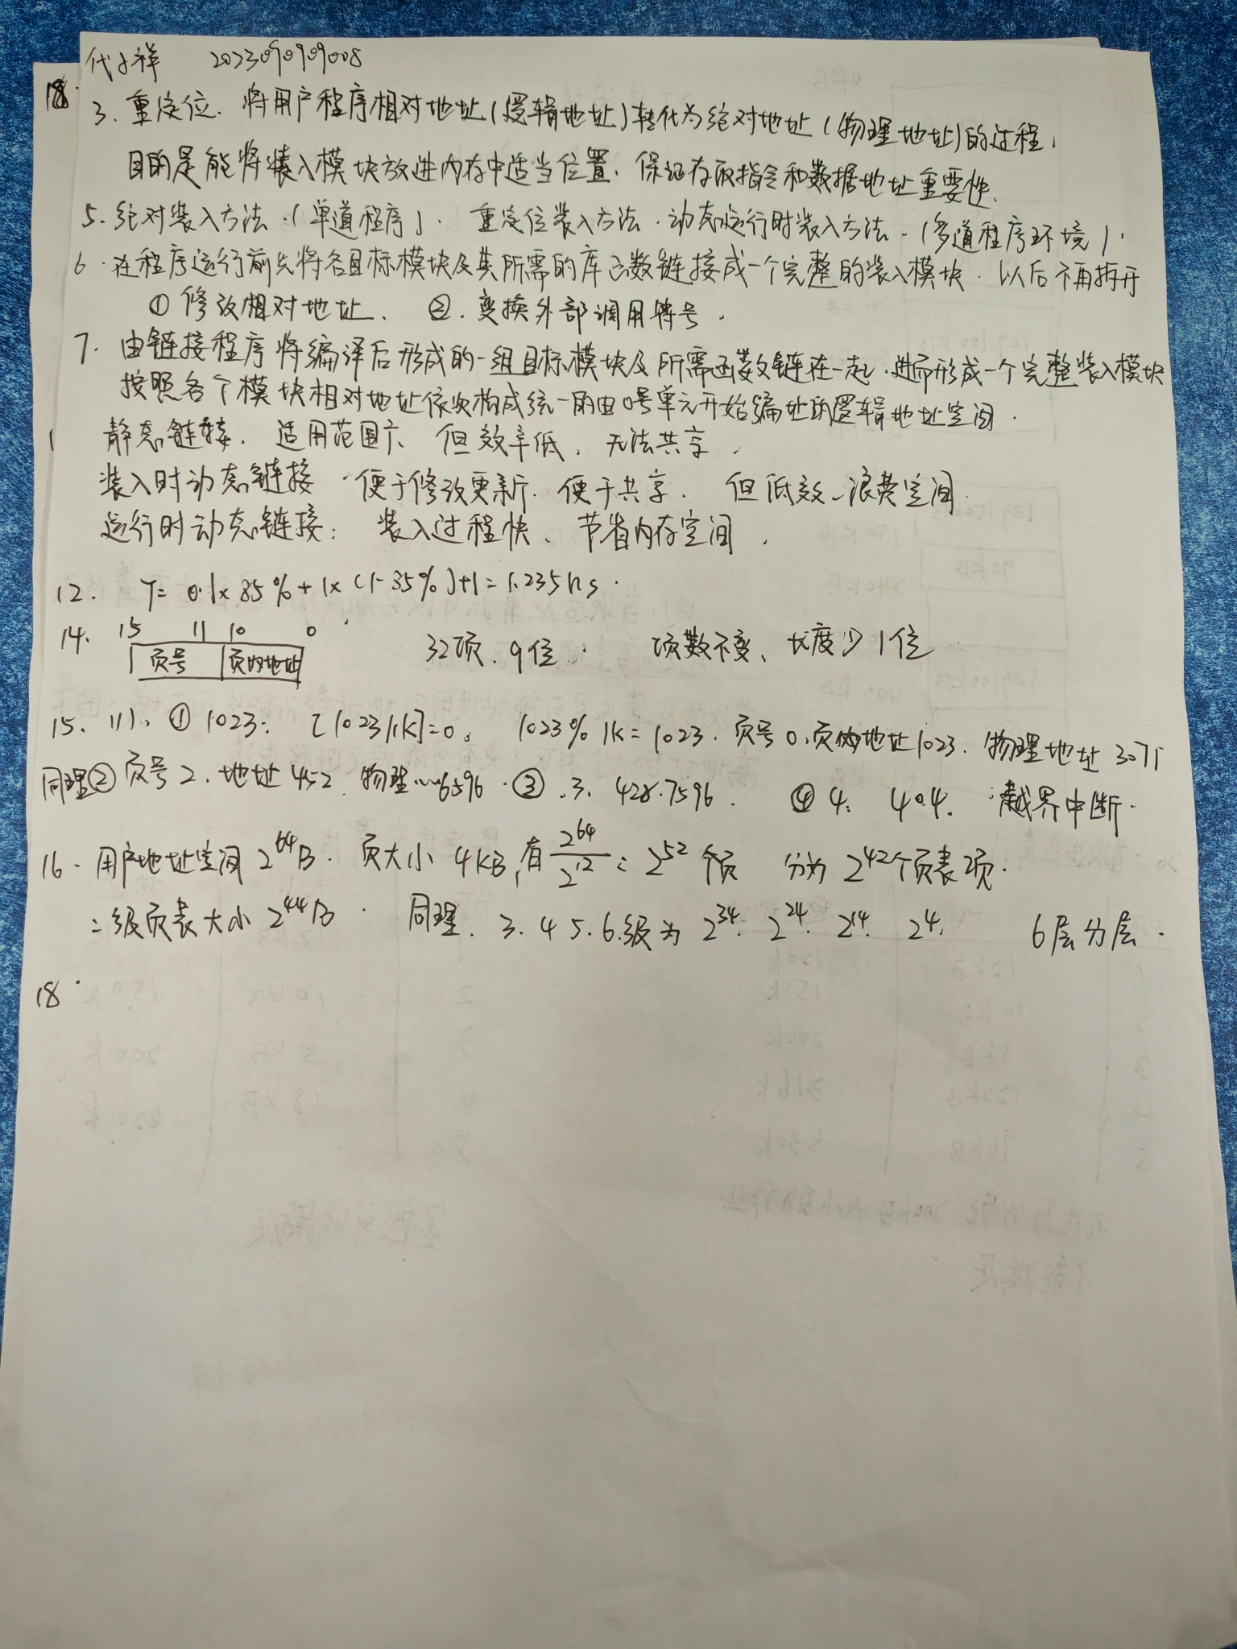 代子祥 2023090909008
3. 重定位. 将用户程序相对地址(逻辑地址)转化为绝对地址(物理地址)的过程,
目的是能将装入模块放进内存中适当位置. 保证存取指令和数据地址重要性.
5. 绝对装入方法.(单道程序). 重定位装入方法. 动态运行时装入方法-(多道程序环境).
6. 在程序运行前先将各目标模块及其所需的库函数链接成一个完整的装入模块. 以后不再拆开
① 修改相对地址、 ②. 变换外部调用符号.
7. 由链接程序将编译后形成的一组目标模块及所需函数链在一起.进而形成一个完整装入模块
按照各个模块相对地址依次构成统一的由0号单元开始编址的逻辑地址空间.
静态链接. 适用范围广 但效率低, 无法共享,
装入时动态链接. 便于修改更新. 便于共享. 但低效-浪费空间.
运行时动态链接: 装入过程快、节省内存空间,
12. T= 0.1×85%+1×(1-85%)+1=1.235ns.
14. 15 11 10 0
页号 页内地址 32项. 9位. 项数不变、长度少1位
15. (1). ① 1023: [1023/1K]=0, 1023%1K=1023. 页号0.页内地址1023. 物理地址3071
同理② 页号2. 地址452. 物理……6596. ③.3. 428.7596. ④ 4. 404. 越界中断.
16. 用户地址空间2^64B. 页大小4KB, 有2^64/2^12=2^52个页 分为2^42个页表项.
二级页表大小2^44B. 同理. 3. 4 5. 6.级为2^34. 2^24. 2^14. 2^4. 6层分层.
18.